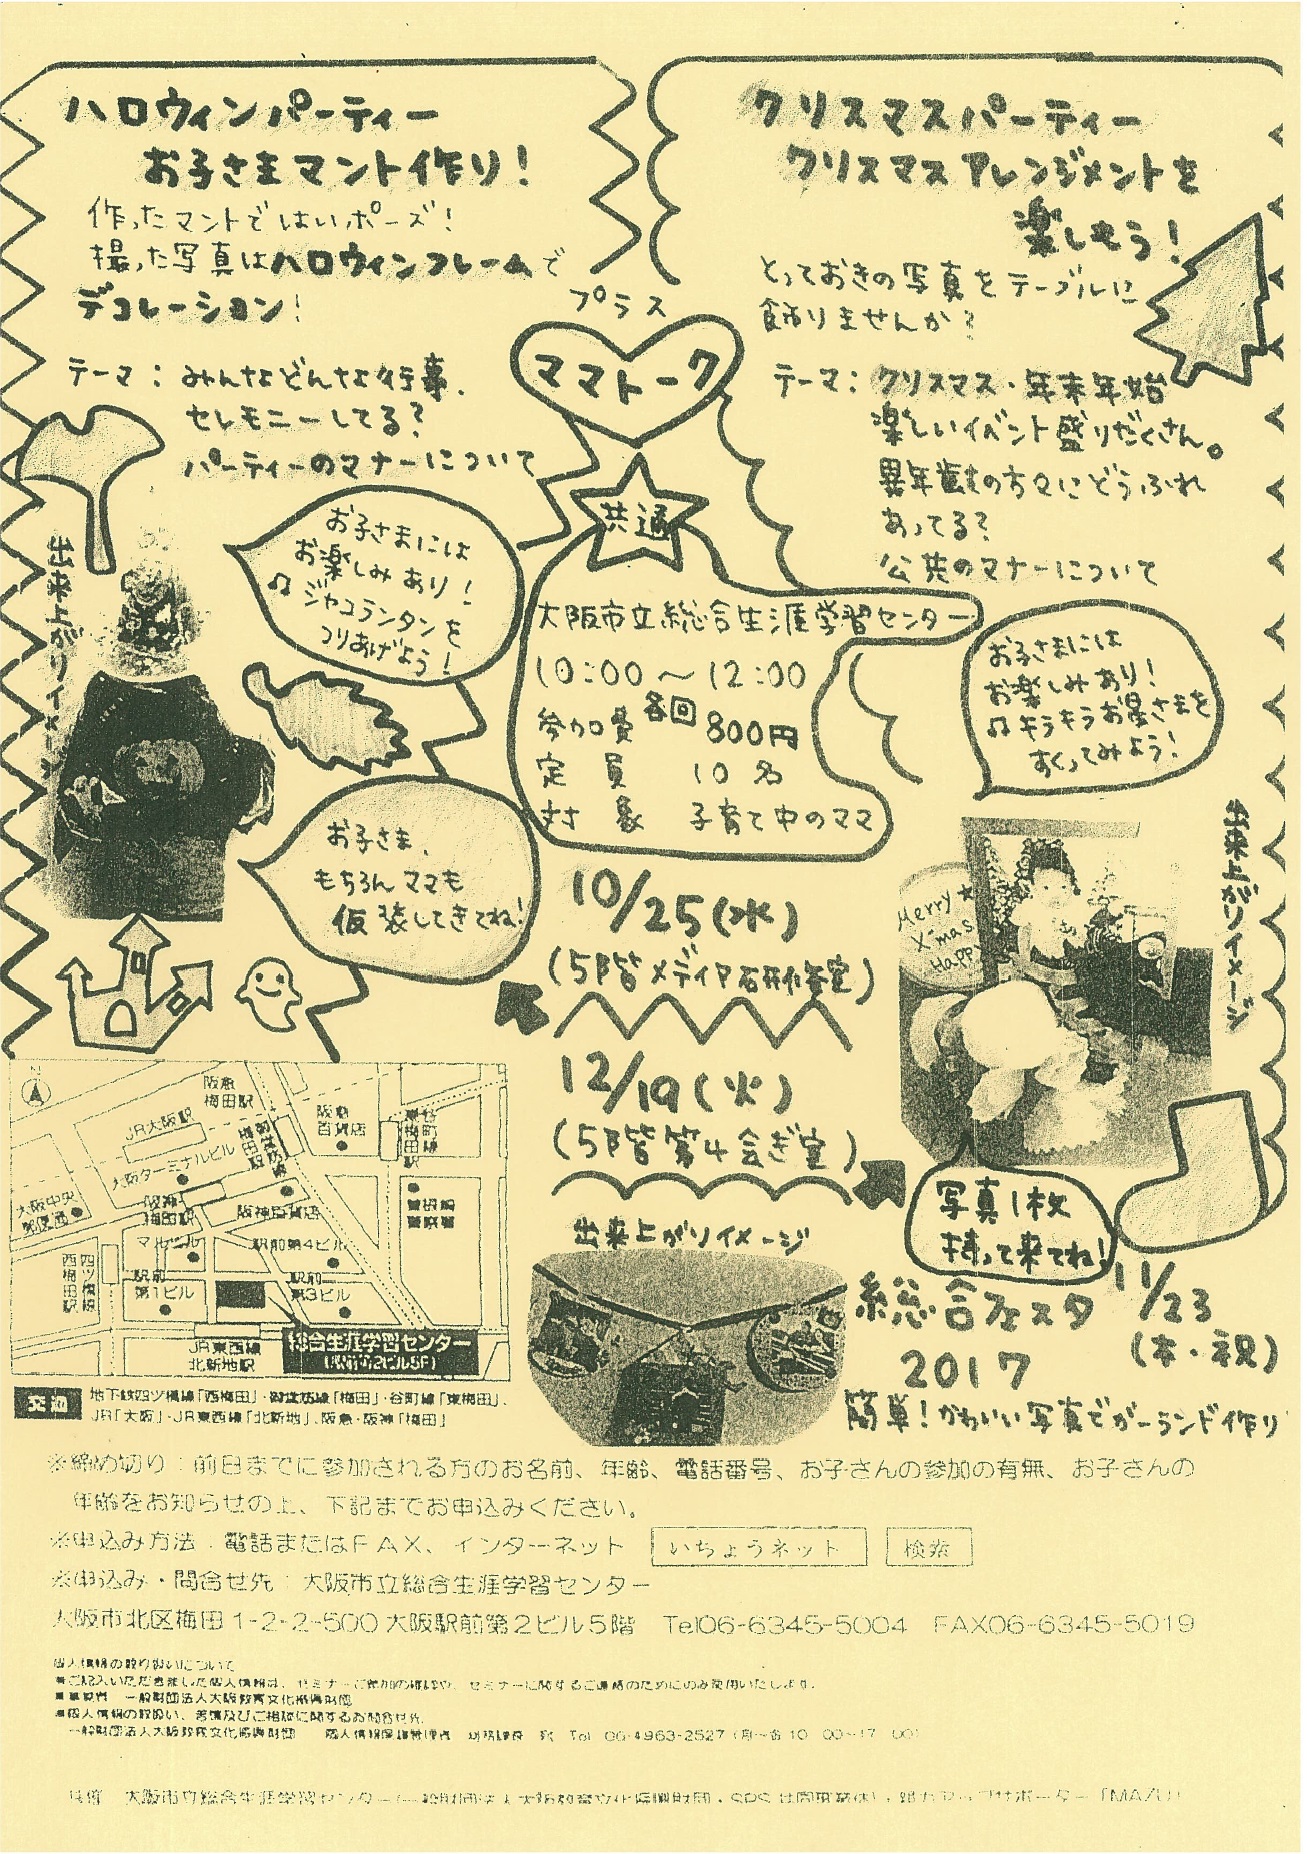 ハロウィンパーティー
お子さまマント作り!
作ったマントではいポーズ!
撮った写真はハロウィンフレームで
デコレーション!
テーマ:みんなどんな行事、
セレモニーしてる?
パーティーのマナーについて
クリスマスパーティー
クリスマスアレンジメントを
楽しもう!
とっておきの写真をテーブルに
飾りませんか?
テーマ:クリスマス・年末年始
楽しいイベント盛りだくさん。
異年齢の方々にどうふれ
あってる?
公共のマナーについて
プラス
ママトーク
共通
大阪市立総合生涯学習センター
10:00～12:00
参加費 各回 800円
定員 10名
対象 子育て中のママ
お子さまには
お楽しみあり!
♫ジャコランタンを
つりあげよう!
出来上がりイメージ
お子さま、
もちろんママも
仮装してきてね!
お子さまには
お楽しみあり!
♫キラキラお星さまを
すくってみよう!
出来上がりイメージ
Merry
X'mas
Happy
10/25(水)
(5階メディア研修室)
12/19(火)
(5階第4会ぎ室)
写真1枚
持って来てね!
出来上がりイメージ
総合フェスタ 11/23
2017 (木・祝)
簡単!かわいい写真でガーランド作り
N
阪急
梅田駅
JR大阪駅
阪急
百貨店
大阪ターミナルビル
大阪中央
郵便局
阪神
梅田駅
阪神百貨店
マルビル
駅前第4ビル
四ツ橋線
西梅田駅
駅前
第1ビル
駅前
第3ビル
JR東西線
北新地駅
総合生涯学習センター
(駅前第2ビル5F)
地下鉄四ツ橋線「西梅田」・御堂筋線「梅田」・谷町線「東梅田」、
JR「大阪」・JR東西線「北新地」、阪急・阪神「梅田」
※締め切り:前日までに参加される方のお名前、年齢、電話番号、お子さんの参加の有無、お子さんの
年齢をお知らせの上、下記までお申込みください。
※申込み方法:電話またはFAX、インターネット いちょうネット 検索
※申込み・問合せ先:大阪市立総合生涯学習センター
大阪市北区梅田1-2-2-500大阪駅前第2ビル5階 Tel06-6345-5004 FAX06-6345-5019
個人情報の取り扱いについて
■ご記入いただきました個人情報は、セミナーご参加の確認や、セミナーに関するご連絡のためにのみ使用いたします。
■事業者 一般財団法人大阪教育文化振興財団
■個人情報の取扱い、苦情及びご相談に関するお問合せ先
一般財団法人大阪教育文化振興財団 個人情報保護管理者 総務課長 Tel 06-4963-2527(月～金10:00～17:00)
共催 大阪市立総合生涯学習センター(一般財団法人大阪教育文化振興財団・SPS共同事業体)・親力アップサポーター「MAZU」